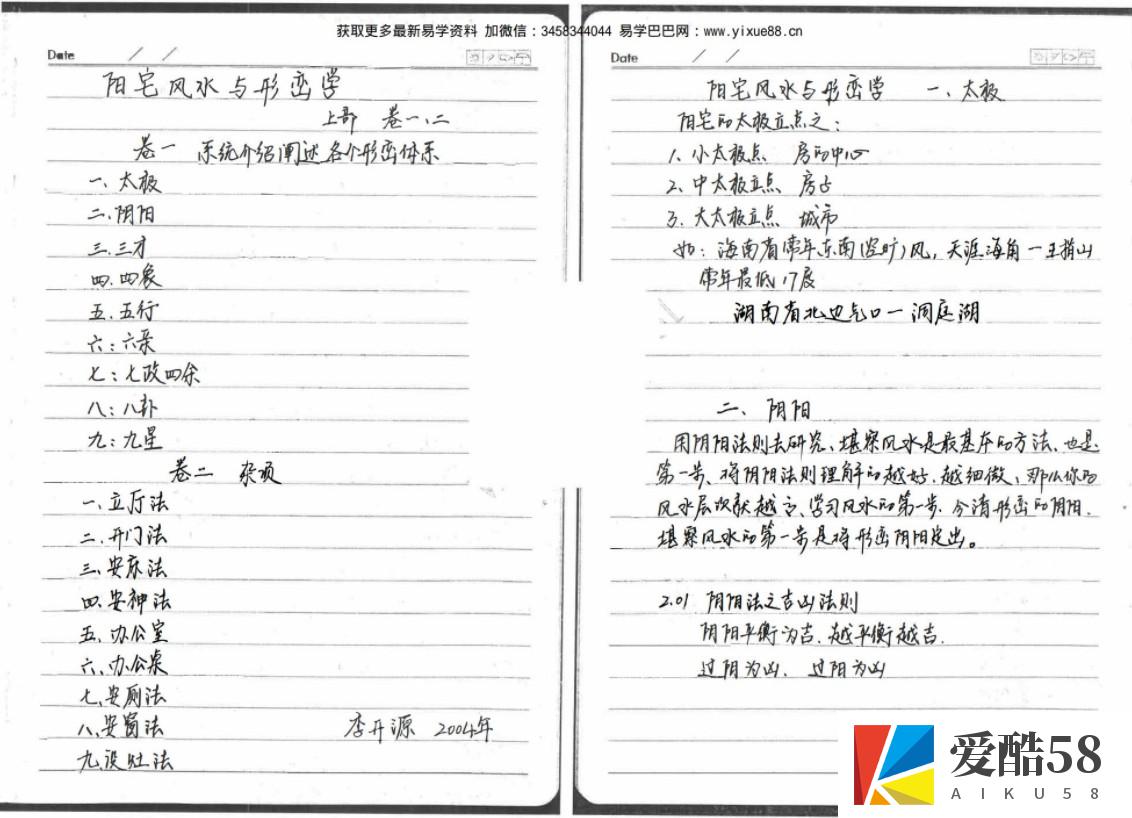 获取更多最新易学资料 加微信：3458344044 易学巴巴网：www.yixue88.cn
Date / /
阳宅风水与形峦学
上部 卷一、二
卷一 系统介绍阐述各个形峦体系
一、太极
二、阴阳
三、三才
四、四象
五、五行
六：六亲
七：七政四余
八：八卦
九：九星
卷二 杂项
一、立厅法
二、开门法
三、安床法
四、安神法
五、办公室
六、办公桌
七、安厕法
八、安窗法
九、设灶法
李开源 2004年
Date / /
阳宅风水与形峦学 一、太极
阳宅的太极立点之：
1、小太极点 房的中心
2、中太极立点 房占
3、大太极立点 城市
如：海南省常年东南(空旷)风，天涯海角一王指山
常年最低17度
湖南省北边气口一洞庭湖
二、阴阳
用阴阳法则去研究、堪察风水是最基本的方法、也是
第一步、将阴阳法则理解的越好、越细微、那么你的
风水层次就越高、学习风水的第一步、分清形峦的阴阳.
堪察风水的第一步是将形峦阴阳定出。
2.01 阴阳法之吉凶法则
阴阳平衡为吉、越平衡越吉.
过阴为凶、过阳为凶
爱酷58
AIKU58